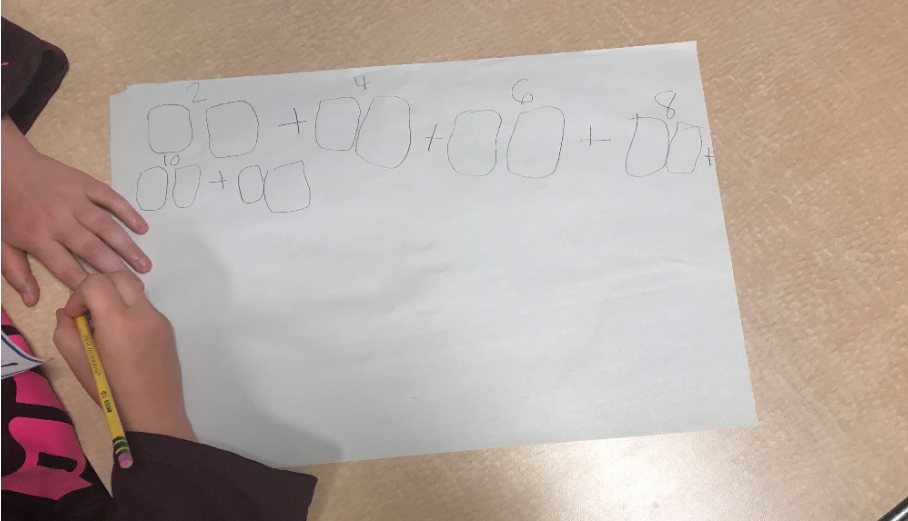 2 + 4 + 6 + 8 +
10 +